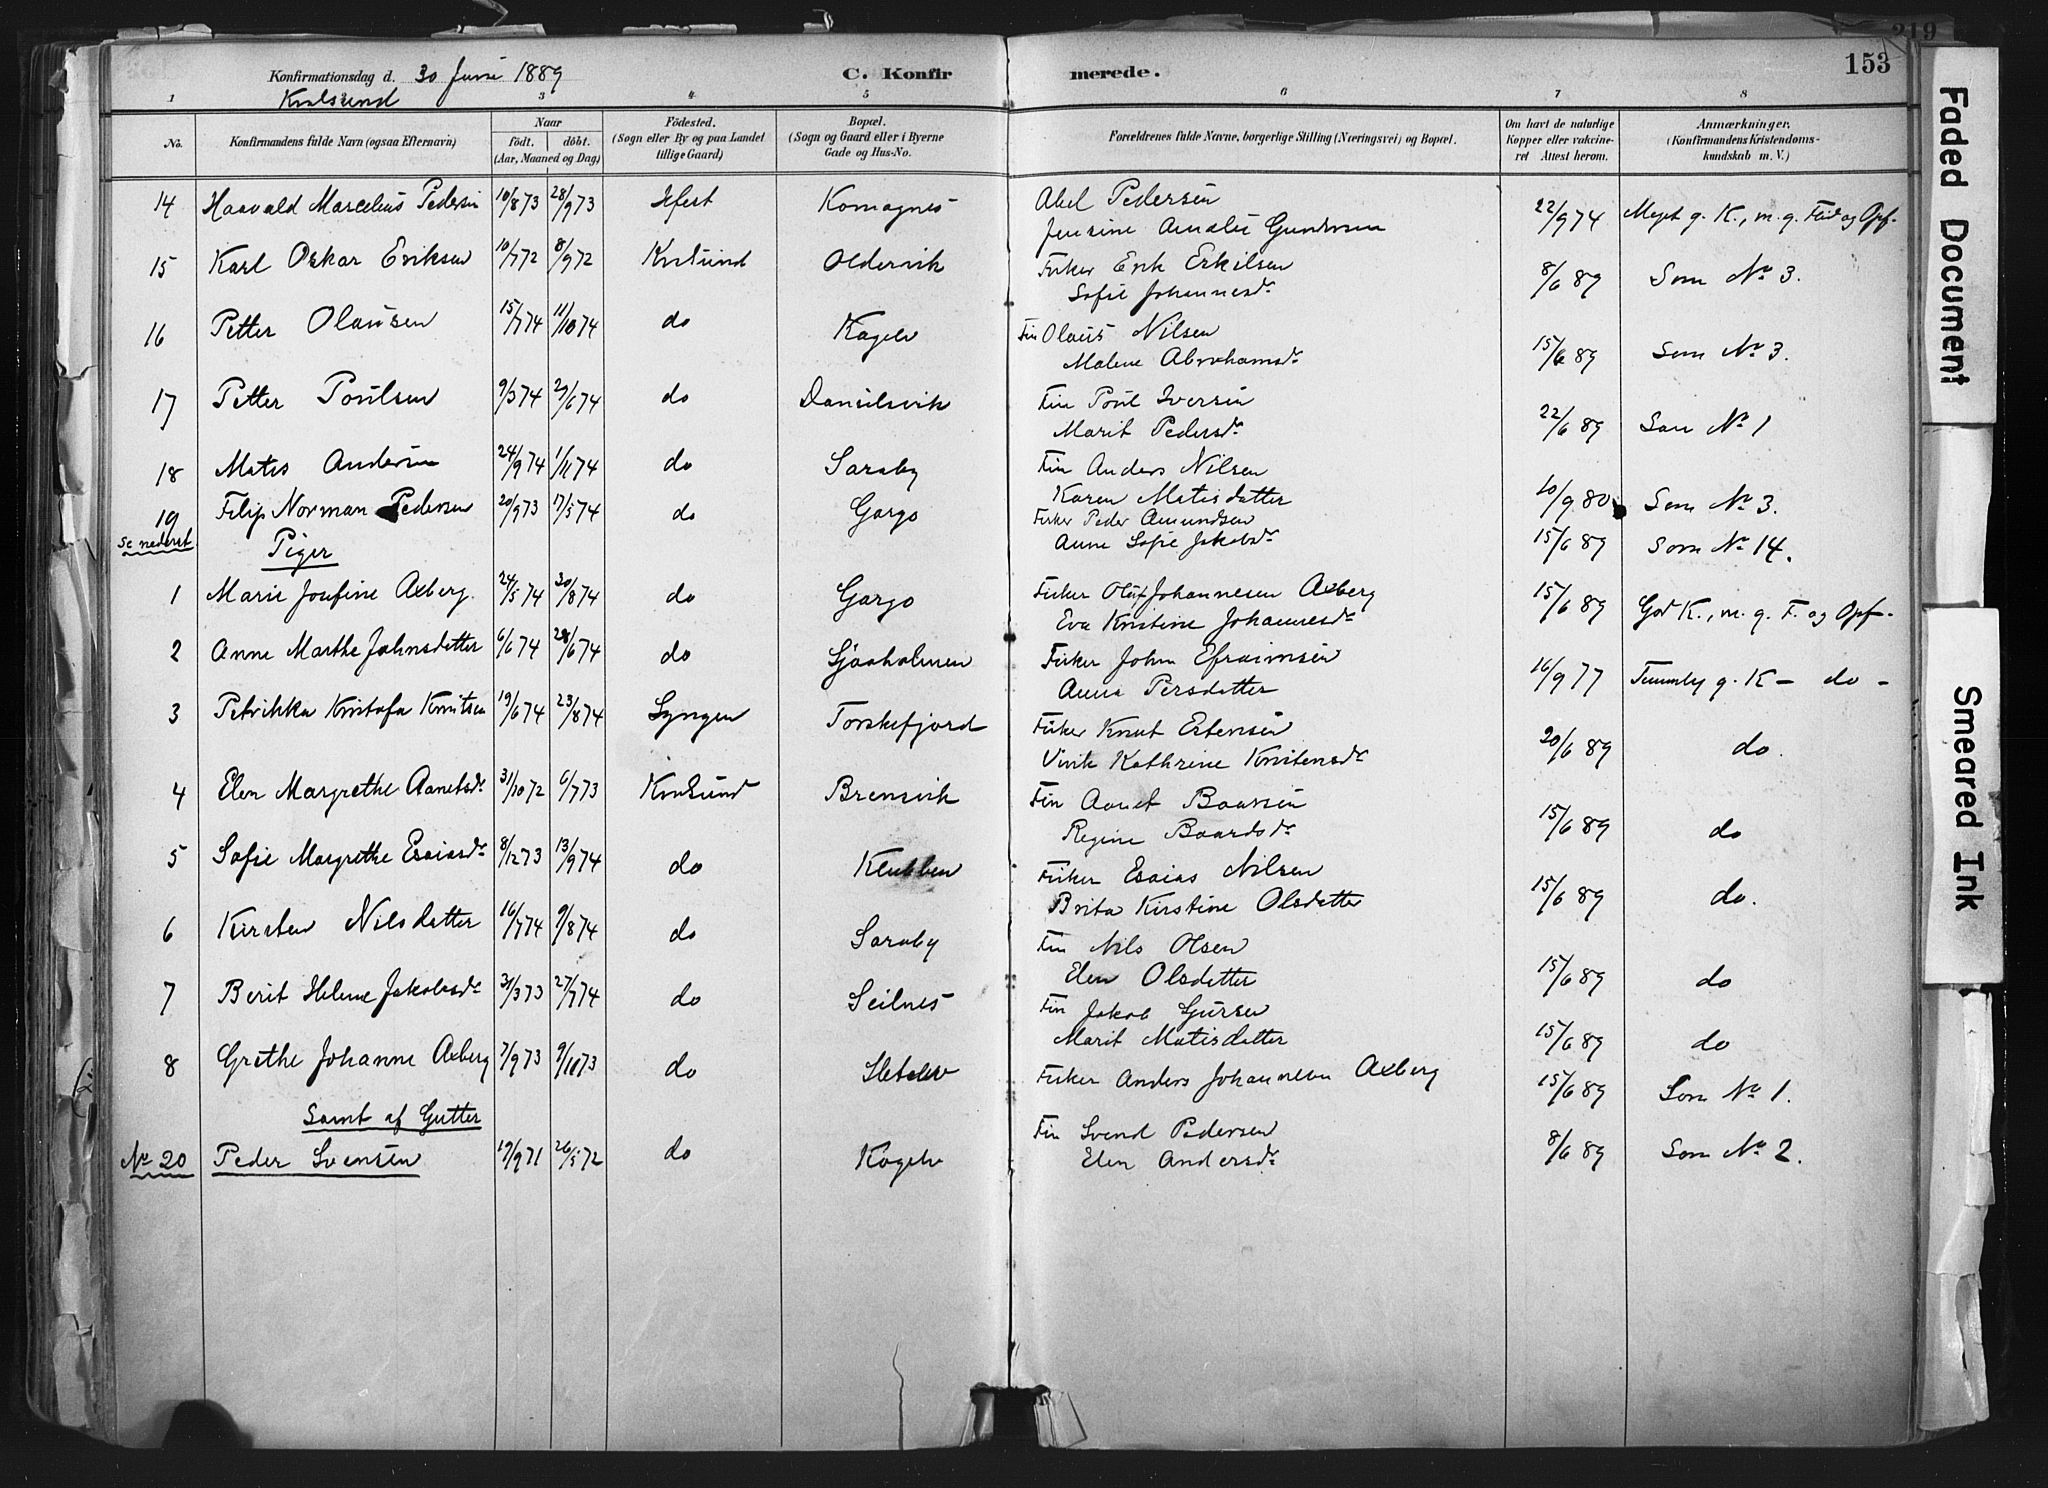 219
153
Konfirmationsdag d. 30 Juni 1889
Kvalsund
C. Konfirmerede.
1 3 4 5 6 7 8
No.
Konfirmandens fulde Navn (ogsaa Efternavn)
Naar
født. døbt.
(Aar, Maaned og Dag)
Födested.
(Sogn eller By og paa Landet tillige Gaard)
Bopæl.
(Sogn og Gaard eller i Byerne Gade og Hus-No.
Forældrenes fulde Navne, borgerlige Stilling (Næringsvei) og Bopæl.
Om havt de naturlige Kopper eller vakcineret Attest herom.
Anmærkninger.
(Konfirmandens Kristendomskundskab m. V.)
14 Haavald Marcelius Pedersen 10/8 73 28/9 73 Hfest Komagnes Abel Pedersen 22/9 74 Meget g. K., m. g. Flid og Opf.
Jensine Amalie Gundersen
15 Karl Oskar Eriksen 10/7 72 8/9 72 Kvalsund Oldervik Fisker Erik Erkilsen 8/6 89 Som No 3.
Sofie Johannesdr
16 Petter Olausen 15/7 74 11/10 74 do Kagelv Fin Olaus Nilsen 15/6 89 Som No 3.
Malene Abrahamsdr
17 Petter Poulsen 9/3 74 27/6 74 do Danielsvik Fin Poul Iversen 22/6 89 Som No 1
Marit Pedersdr
18 Matis Andersen 24/9 74 1/11 74 do Saraby Fin Anders Nilsen 10/9 80 Som No 3.
Karen Matisdatter
19 Filip Norman Pedersen 20/9 73 17/5 74 do Gargo Fisker Peder Amundsen 15/6 89 Som No 14.
Se nederst. Anne Sofie Jakobsdr
Piger
1 Marie Josefine Axberg 24/5 74 30/8 74 do Gargo Fisker Oluf Johannesen Axberg 15/6 89 God K., m. g. F. og Opf.
Eva Kristine Johannesdr
2 Anne Marthe Johnsdatter 6/6 74 28/6 74 do Sjøaholmen Fisker John Efraimsen 16/9 77 Temmelig g. K - do -
Anna Persdatter
3 Petrikka Kristofa Knutsen 19/6 74 23/8 74 Lyngen Torskefjord Fisker Knut Estensen 20/6 89 do.
Virik Kathrine Kristensdr
4 Elen Margrethe Aanetsdr 31/10 72 6/7 73 Kvalsund Brensvik Fin Aanet Baarsen 15/6 89 do
Regine Baardsdr
5 Sofie Margrethe Esaiasdr 8/12 73 13/9 74 do Klubben Fisker Esaias Nilsen 15/6 89 do.
Brita Kirstine Olsdatter
6 Kirsten Nilsdatter 16/7 74 9/8 74 do Saraby Fin Nils Olsen 15/6 89 do
Elen Olsdatter
7 Berit Helene Jakobsdr 31/3 73 27/7 74 do Seilnes Fin Jakob Sjursen 15/6 89 do
Marit Matisdatter
8 Grethe Johanne Axberg 7/9 73 9/10 73 do Fisker Anders Johannesen Axberg 15/6 89 Som No 1.
Samt af Gutter
No 20 Peder Svensen 19/9 71 26/5 72 do Kagelv Fin Svend Pedersen 8/6 89 Som No 2.
Elen Andersdr
Faded Document
Smeared Ink